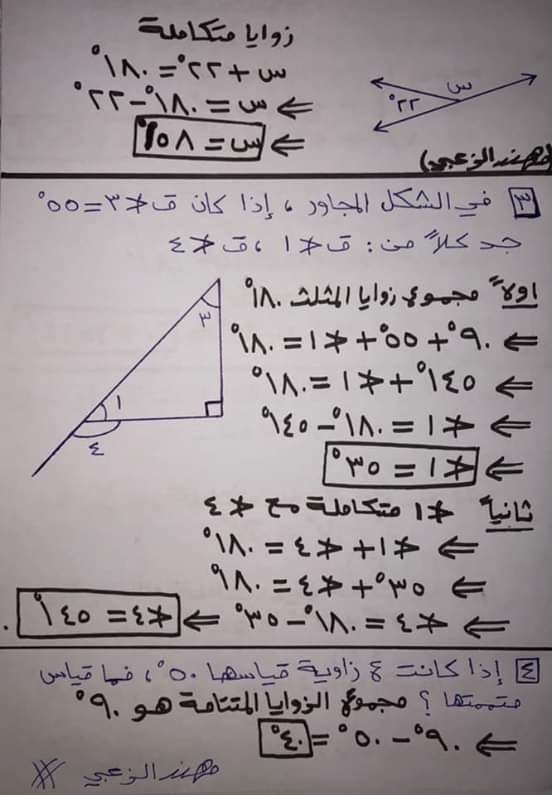 زوايا متكاملة
س + ٢٢° = ١٨٠°
⇐ س = ١٨٠° − ٢٢°
⇐ س = ١٥٨°
س
٢٢°
(مهند الزعبي)
٣ في الشكل المجاور ، إذا كان ق∢٣ = ٥٥°
جد كلاً من : ق∢١ ، ق∢٤
اولاً مجموع زوايا المثلث ١٨٠°
⇐ ٩٠° + ٥٥° + ∢١ = ١٨٠°
⇐ ١٤٥° + ∢١ = ١٨٠°
⇐ ∢١ = ١٨٠° − ١٤٥°
⇐ ∢١ = ٣٥°
٣
١
٤
ثانياً ∢١ متكاملة مع ∢٤
⇐ ∢١ + ∢٤ = ١٨٠°
⇐ ٣٥° + ∢٤ = ١٨٠°
⇐ ∢٤ = ١٨٠° − ٣٥° ⇐ ∢٤ = ١٤٥°
٤ إذا كانت ع زاوية قياسها ٥٠° ، فما قياس
متممتها ؟ مجموع الزوايا المتتامة هو ٩٠°
⇐ ٩٠° − ٥٠° = ٤٠°
مهند الزعبي